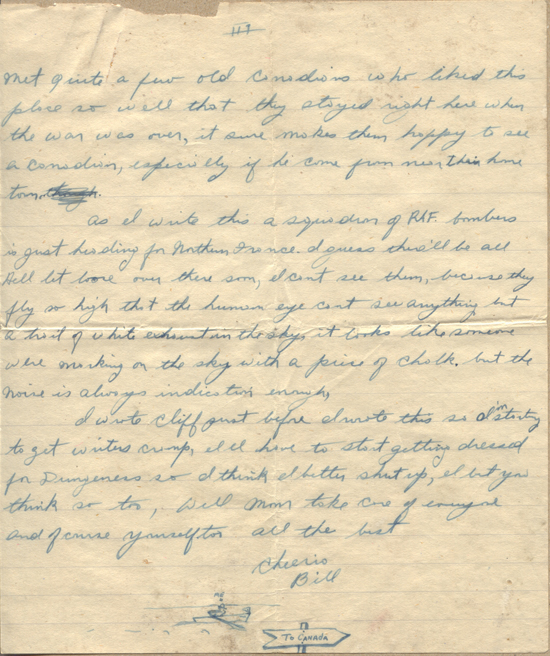 III
Met quite a few old Canadians who liked this
place so well that they stayed right here when
the war was over, it sure makes them happy to see
a Canadian, especially if he come from near their home
town.
As I write this a squadron of RAF. bombers
is just heading for Northern France. I guess there'll be all
Hell let loose over there soon, I cant see them, because they
fly so high that the human eye cant see anything but
a trail of white exhaust in the sky, it looks like someone
were marking on the sky with a piece of chalk. but the
noise is always indication enough,
I wrote Cliff just before I wrote this so I'm starting
to get writers cramp, I'll have to start getting dressed
for Dungeness so I think I better shut up, I bet you
think so too, Well Mom take care of everyone
and of course yourself too all the best
Cheerio
Bill
TO CANADA